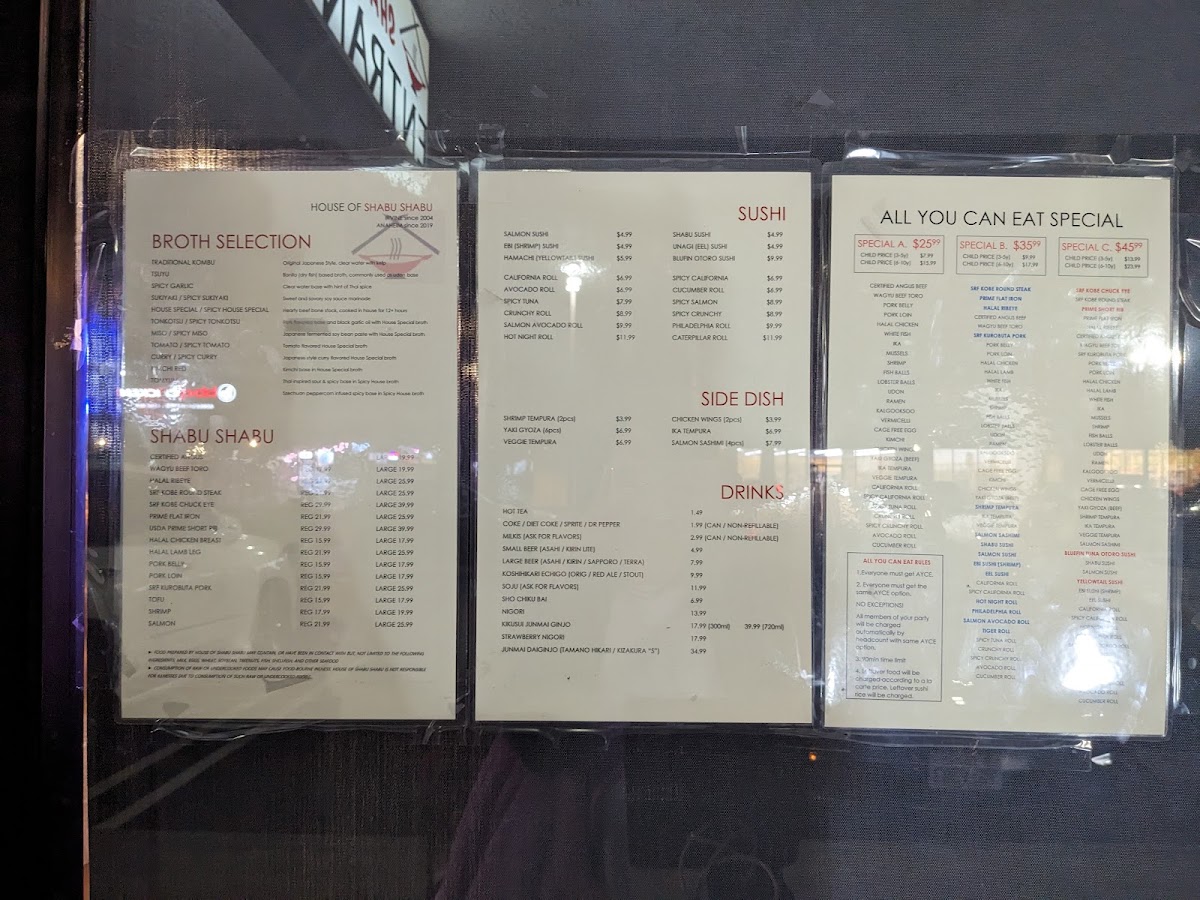 ENTRAN
HOUSE OF SHABU SHABU
IRVINE since 2004
ANAHEIM since 2019
BROTH SELECTION
TRADITIONAL KOMBU Original Japanese Style, clear water with kelp
TSUYU Bonito (dry fish) based broth, commonly used as udon base
SPICY GARLIC Clear water base with hint of Thai spice
SUKIYAKI / SPICY SUKIYAKI Sweet and savory soy sauce marinade
HOUSE SPECIAL / SPICY HOUSE SPECIAL Hearty beef bone stock, cooked in house for 12+ hours
TONKOTSU / SPICY TONKOTSU Pork flavored base and black garlic oil with House Special broth
MISO / SPICY MISO Japanese fermented soy bean paste with House Special broth
TOMATO / SPICY TOMATO Tomato flavored House Special broth
CURRY / SPICY CURRY Japanese style curry flavored House Special broth
KIMCHI RED Kimchi base in House Special broth
Thai inspired sour & spicy base in Spicy House broth
Szechuan peppercorn infused spicy base in Spicy House broth
SHABU SHABU
CERTIFIED ANGUS 19.99
WAGYU BEEF TORO LARGE 19.99
HALAL RIBEYE LARGE 25.99
SRF KOBE ROUND STEAK LARGE 25.99
SRF KOBE CHUCK EYE REG 29.99 LARGE 39.99
PRIME FLAT IRON REG 21.99 LARGE 25.99
USDA PRIME SHORT RIB REG 29.99 LARGE 39.99
HALAL CHICKEN BREAST REG 15.99 LARGE 17.99
HALAL LAMB LEG REG 21.99 LARGE 25.99
PORK BELLY REG 15.99 LARGE 17.99
PORK LOIN REG 15.99 LARGE 17.99
SRF KUROBUTA PORK REG 21.99 LARGE 25.99
TOFU REG 15.99 LARGE 17.99
SHRIMP REG 17.99 LARGE 19.99
SALMON REG 21.99 LARGE 25.99
► FOOD PREPARED BY HOUSE OF SHABU SHABU MAY CONTAIN, OR HAVE BEEN IN CONTACT WITH BUT, NOT LIMITED TO THE FOLLOWING
INGREDIENTS: MILK, EGGS, WHEAT, SOYBEAN, PEANUTS, FISH, SHELLFISH, AND OTHER SEAFOOD
► CONSUMPTION OF RAW OR UNDERCOOKED FOODS MAY CAUSE FOOD-BOURNE ILLNESS. HOUSE OF SHABU SHABU IS NOT RESPONSIBLE
FOR ILLNESSES DUE TO CONSUMPTION OF SUCH RAW OR UNDERCOOKED FOODS.
SUSHI
SALMON SUSHI $4.99 SHABU SUSHI $4.99
EBI (SHRIMP) SUSHI $4.99 UNAGI (EEL) SUSHI $4.99
HAMACHI (YELLOWTAIL) SUSHI $5.99 BLUFIN OTORO SUSHI $9.99
CALIFORNIA ROLL $6.99 SPICY CALIFORNIA $6.99
AVOCADO ROLL $6.99 CUCUMBER ROLL $6.99
SPICY TUNA $7.99 SPICY SALMON $8.99
CRUNCHY ROLL $8.99 SPICY CRUNCHY $8.99
SALMON AVOCADO ROLL $9.99 PHILADELPHIA ROLL $9.99
HOT NIGHT ROLL $11.99 CATERPILLAR ROLL $11.99
SIDE DISH
SHRIMP TEMPURA (2pcs) $3.99 CHICKEN WINGS (2pcs) $3.99
YAKI GYOZA (6pcs) $6.99 IKA TEMPURA $6.99
VEGGIE TEMPURA $6.99 SALMON SASHIMI (4pcs) $7.99
DRINKS
HOT TEA 1.49
COKE / DIET COKE / SPRITE / DR PEPPER 1.99 (CAN / NON-REFILLABLE)
MILKIS (ASK FOR FLAVORS) 2.99 (CAN / NON-REFILLABLE)
SMALL BEER (ASAHI / KIRIN LITE) 4.99
LARGE BEER (ASAHI / KIRIN / SAPPORO / TERRA) 7.99
KOSHIHIKARI ECHIGO (ORIG / RED ALE / STOUT) 9.99
SOJU (ASK FOR FLAVORS) 11.99
SHO CHIKU BAI 6.99
NIGORI 13.99
KIKUSUI JUNMAI GINJO 17.99 (300ml) 39.99 (720ml)
STRAWBERRY NIGORI 17.99
JUNMAI DAIGINJO (TAMANO HIKARI / KIZAKURA "S") 34.99
ALL YOU CAN EAT SPECIAL
SPECIAL A. $25.99
CHILD PRICE (3-5y) $7.99
CHILD PRICE (6-10y) $15.99
CERTIFIED ANGUS BEEF
WAGYU BEEF TORO
PORK BELLY
PORK LOIN
HALAL CHICKEN
WHITE FISH
IKA
MUSSELS
SHRIMP
FISH BALLS
LOBSTER BALLS
UDON
RAMEN
KALGOOKSOO
VERMICELLI
CAGE FREE EGG
KIMCHI
CHICKEN WINGS
YAKI GYOZA (BEEF)
IKA TEMPURA
VEGGIE TEMPURA
CALIFORNIA ROLL
SPICY CALIFORNIA ROLL
SPICY TUNA ROLL
CRUNCHY ROLL
SPICY CRUNCHY ROLL
AVOCADO ROLL
CUCUMBER ROLL
ALL YOU CAN EAT RULES
1. Everyone must get AYCE.
2. Everyone must get the
same AYCE option.
NO EXCEPTIONS!
All members of your party
will be charged
automatically by
headcount with same AYCE
option.
3. 90min time limit
4. Leftover food will be
charged according to a la
carte price. Leftover sushi
rice will be charged.
SPECIAL B. $35.99
CHILD PRICE (3-5y) $9.99
CHILD PRICE (6-10y) $17.99
SRF KOBE ROUND STEAK
PRIME FLAT IRON
HALAL RIBEYE
CERTIFIED ANGUS BEEF
WAGYU BEEF TORO
SRF KUROBUTA PORK
PORK BELLY
PORK LOIN
HALAL CHICKEN
HALAL LAMB
WHITE FISH
IKA
MUSSELS
SHRIMP
FISH BALLS
LOBSTER BALLS
UDON
RAMEN
KALGOOKSOO
VERMICELLI
CAGE FREE EGG
KIMCHI
CHICKEN WINGS
YAKI GYOZA (BEEF)
SHRIMP TEMPURA
IKA TEMPURA
VEGGIE TEMPURA
SALMON SASHIMI
SHABU SUSHI
SALMON SUSHI
EBI SUSHI (SHRIMP)
EEL SUSHI
CALIFORNIA ROLL
SPICY CALIFORNIA ROLL
HOT NIGHT ROLL
PHILADELPHIA ROLL
SALMON AVOCADO ROLL
TIGER ROLL
SPICY TUNA ROLL
CRUNCHY ROLL
SPICY CRUNCHY ROLL
AVOCADO ROLL
CUCUMBER ROLL
SPECIAL C. $45.99
CHILD PRICE (3-5y) $13.99
CHILD PRICE (6-10y) $23.99
SRF KOBE CHUCK EYE
SRF KOBE ROUND STEAK
PRIME SHORT RIB
PRIME FLAT IRON
HALAL RIBEYE
CERTIFIED ANGUS BEEF
WAGYU BEEF TORO
SRF KUROBUTA PORK
PORK BELLY
PORK LOIN
HALAL CHICKEN
HALAL LAMB
WHITE FISH
IKA
MUSSELS
SHRIMP
FISH BALLS
LOBSTER BALLS
UDON
RAMEN
KALGOOKSOO
VERMICELLI
CAGE FREE EGG
KIMCHI
CHICKEN WINGS
YAKI GYOZA (BEEF)
SHRIMP TEMPURA
IKA TEMPURA
VEGGIE TEMPURA
SALMON SASHIMI
BLUEFIN TUNA OTORO SUSHI
SHABU SUSHI
SALMON SUSHI
YELLOWTAIL SUSHI
EBI SUSHI (SHRIMP)
EEL SUSHI
CALIFORNIA ROLL
SPICY
AVOCADO ROLL
CUCUMBER ROLL